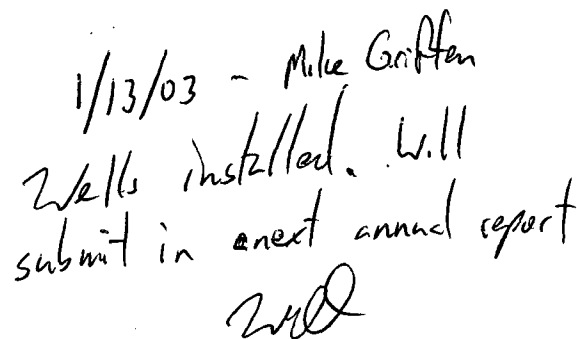 1/13/03 - Mike Griffen
Wells installed. Will
submit in next annual report